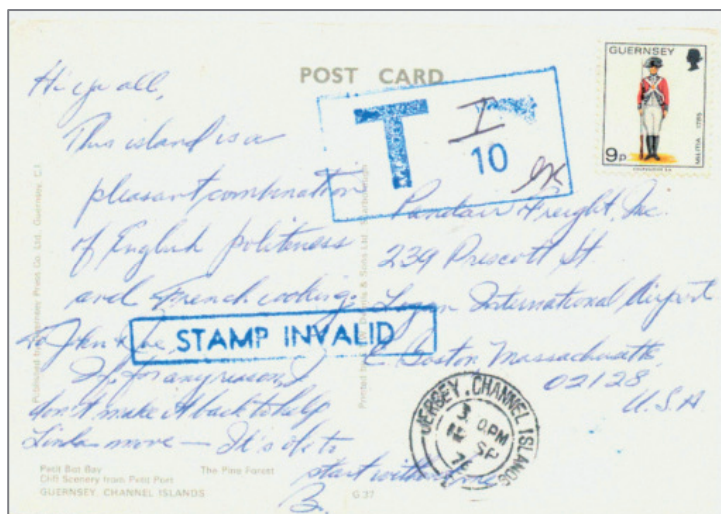 POST CARD
GUERNSEY
MILITIA 1785
9p
T
10
Hi y'all,
This island is a
pleasant combination
of English politeness
and French cooking.
To John &
If for any reason I
don't make it back to help
Linda move — It's ok to
start without me
B.
STAMP INVALID
Pandair Freight, Inc.
239 Prescott St.
Logan International Airport
E Boston Massachusetts
02128
U.S.A.
JERSEY. CHANNEL ISLANDS
PM
SP
Petit Bot Bay
The Pine Forest
Cliff Scenery from Petit Port
GUERNSEY, CHANNEL ISLANDS